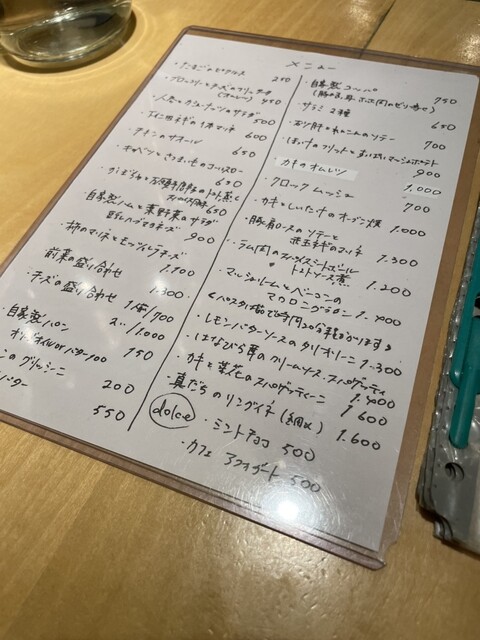 メニュー
・たまごのピクルス 250
・ブロッコリーとチーズのフリッタータ
(オムレツ) 450
・人参とカシューナッツのサラダ 500
玉ネギのマリネ 600
チキンの 650
キャベツとさつまいものコールスロー 650
ごぼうと トマト煮 650
自家製ハムと葉野菜のサラダ
ハーブマヨネーズ 900
・柿のマリネとモッツァレラチーズ 1,100
前菜の盛り合わせ 1,300
・チズの盛り合わせ 1種/700
3〃/1,000
自家製パン 150
オリーブオイル or バター 100
グリッシーニ 200
バター 550
・自家製コッパ 750
・サラミ 2種 650
・砂肝とれんこんのソテー 700
・ほっけのフリット マッシュポテト 900
・カキのオムレツ 1,000
・クロックムッシュ 700
・カキとしいたけのオーブン焼 1,000
・豚肩ロースのソテー
玉ネギのマリネ 1,300
・ラム肉のスパイスミートボール
トマトソース煮 1,200
・マッシュルームとベーコンの
マカロニグラタン 1,400
<パスタは茹で時間20分程かかります>
・レモンバターソースのタリオリーニ 1,300
・はなびら茸のクリームソース スパゲッティ 1,400
・カキと菜花のスパゲッティーニ 1,600
・真だらのリングイネ 1,600
dolce
・ミントチョコ 500
・カフェ アフォガート 500